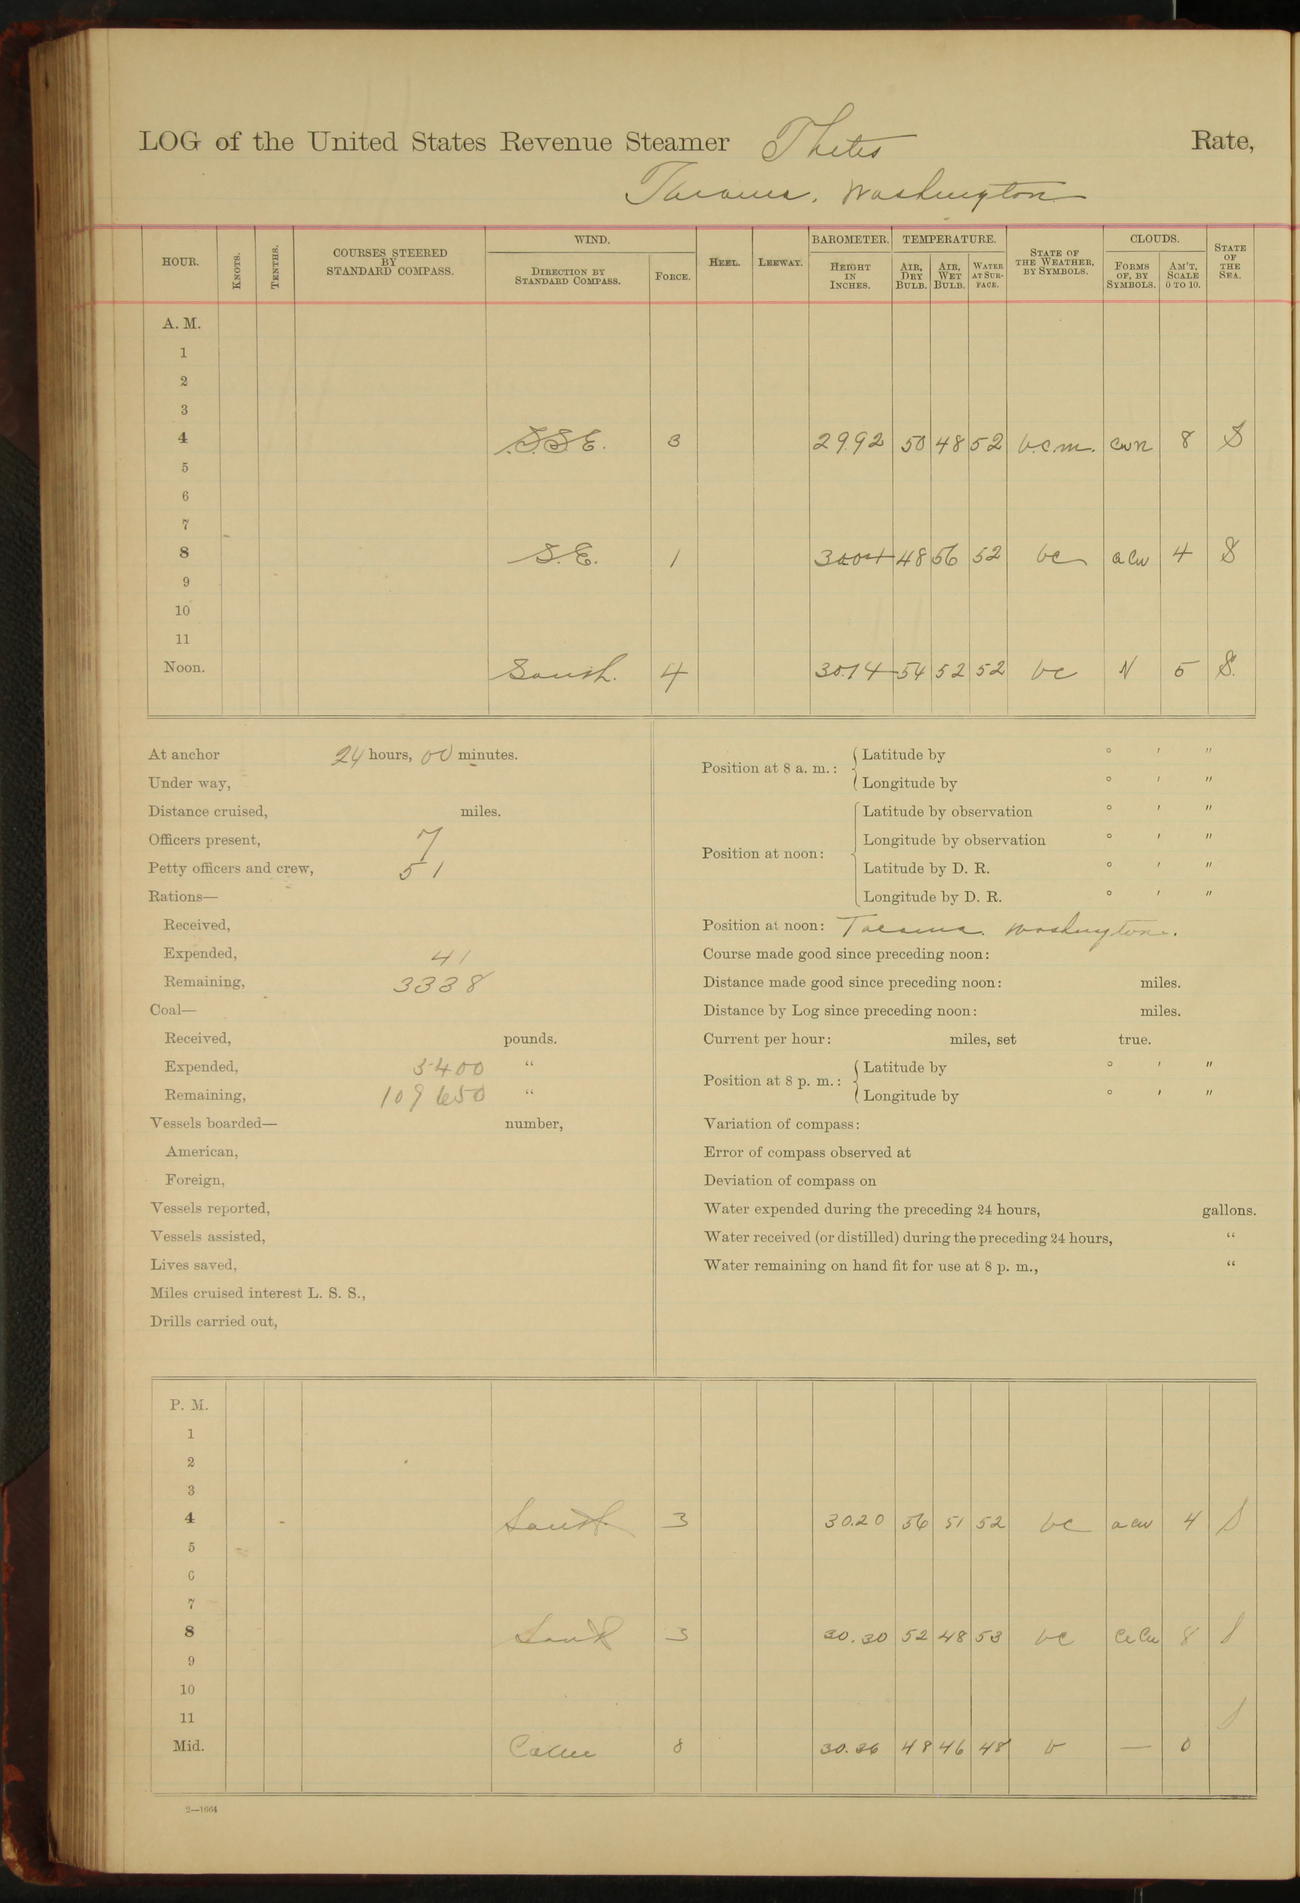 LOG of the United States Revenue Steamer Thetis Rate,
Tacoma, Washington
HOUR. KNOTS. TENTHS. COURSES STEERED BY STANDARD COMPASS. WIND. DIRECTION BY STANDARD COMPASS. FORCE. HEEL. LEEWAY. BAROMETER. HEIGHT IN INCHES. TEMPERATURE. AIR, DRY BULB. AIR, WET BULB. WATER AT SURFACE. STATE OF THE WEATHER, BY SYMBOLS. CLOUDS. FORMS OF, BY SYMBOLS. AM'T, SCALE 0 TO 10. STATE OF THE SEA.
A. M.
1
2
3
4 S.S.E. 3 29.92 50 48 52 b.c.m. cun 8 S
5
6
7
8 S.E. 1 30.04 48 56 52 bc a cu 4 S
9
10
11
Noon. South. 4 30.14 54 52 52 bc N 5 S.
At anchor 24 hours, 00 minutes.
Under way,
Distance cruised, miles.
Officers present, 7
Petty officers and crew, 51
Rations—
Received,
Expended, 41
Remaining, 3338
Coal—
Received, pounds.
Expended, 5400 "
Remaining, 109650 "
Vessels boarded— number,
American,
Foreign,
Vessels reported,
Vessels assisted,
Lives saved,
Miles cruised interest L. S. S.,
Drills carried out,
Position at 8 a. m.: Latitude by ° ′ ″
Longitude by ° ′ ″
Position at noon: Latitude by observation ° ′ ″
Longitude by observation ° ′ ″
Latitude by D. R. ° ′ ″
Longitude by D. R. ° ′ ″
Position at noon: Tacoma. Washington.
Course made good since preceding noon:
Distance made good since preceding noon: miles.
Distance by Log since preceding noon: miles.
Current per hour: miles, set true.
Position at 8 p. m.: Latitude by ° ′ ″
Longitude by ° ′ ″
Variation of compass:
Error of compass observed at
Deviation of compass on
Water expended during the preceding 24 hours, gallons.
Water received (or distilled) during the preceding 24 hours, "
Water remaining on hand fit for use at 8 p. m., "
P. M.
1
2
3
4 South. 3 30.20 56 51 52 bc a cu 4 S
5
6
7
8 South 3 30.30 52 48 53 bc Ci Cu 8 S
9
10
11 S
Mid. Calm 0 30.36 48 46 48 b — 0
2—1664